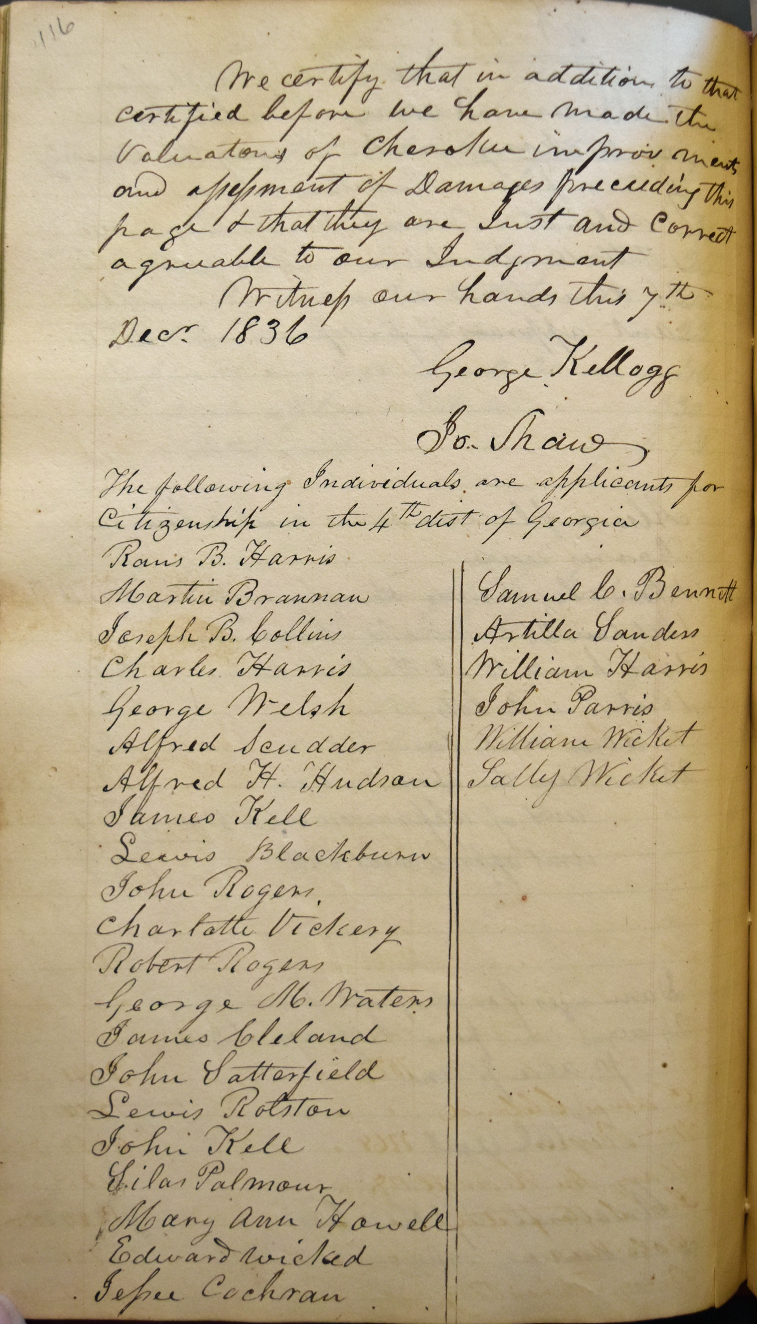 116
We certify that in addition to that
certified before we have made the
valuations of Cherokee improvments
and assessment of Damages preceeding this
page & that they are Just and Correct
agreeable to our Judgment
Witness our hands this 7th
Decr 1836
George Kellogg
Jo. Shaw
The following Individuals are applicants for
Citizenship in the 4th dist of Georgia
Rans B. Harris
Martin Brannan
Joseph B. Collins
Charles Harris
George Welsh
Alfred Scudder
Alfred H. Hudson
James Kell
Lewis Blackburn
John Rogers
Charlotte Vickery
Robert Rogers
George M. Waters
James Cleland
John Satterfield
Lewis Rolston
John Kell
Silas Palmour
Mary Ann Howell
Edward wicked
Jessee Cochran
Samuel C. Bennett
Artilla Sanders
William Harris
John Parris
William Wicket
Sally Wicket